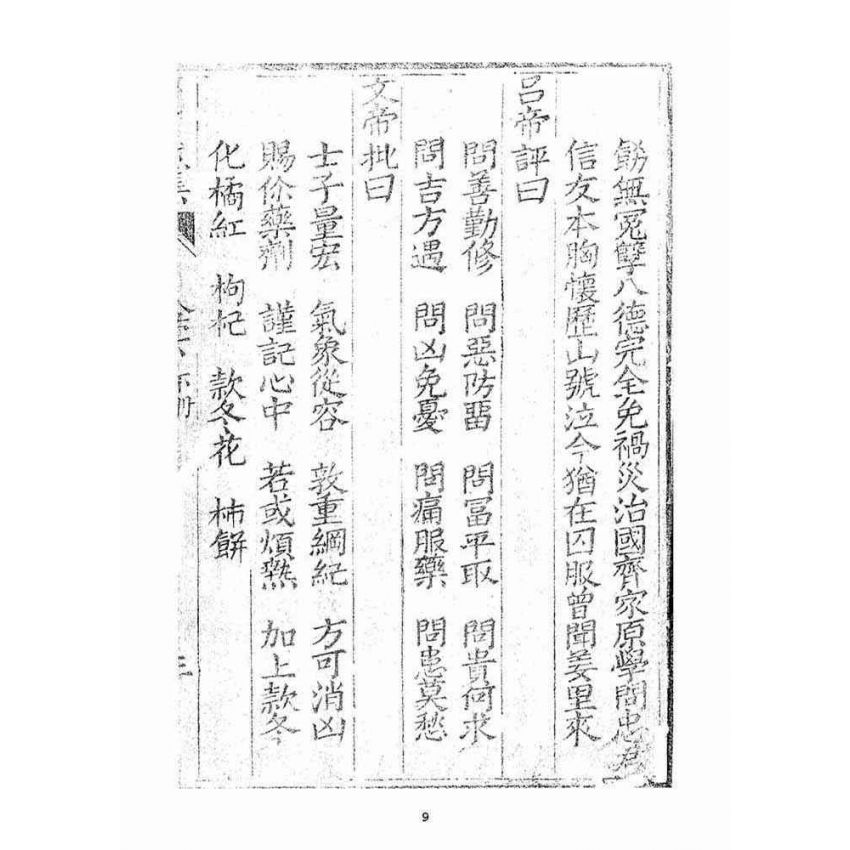 無冤孽八德完全免禍災治國齊家原學問忠君
信友本胸懷歷山號泣今猶在囚服曾聞羑里來
呂帝評曰
問善勤修 問惡防畱 問冨平取 問貴何求
問吉方遇 問凶免憂 問痛服藥 問患莫愁
文帝批曰
士子量宏 氣象從容 敦重綱紀 方可消凶
賜你藥劑 謹記心中 若或煩熱 加上款冬
化橘紅 枸杞 款冬花 柿餅
9